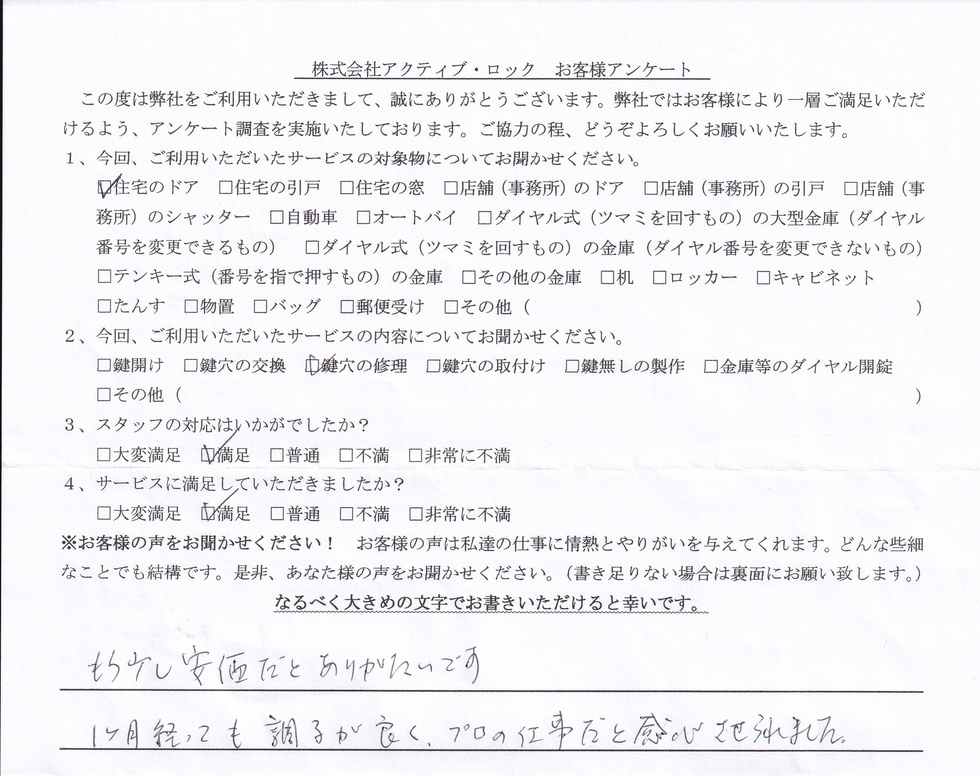 株式会社アクティブ・ロック　お客様アンケート
この度は弊社をご利用いただきまして、誠にありがとうございます。弊社ではお客様により一層ご満足いただ
けるよう、アンケート調査を実施いたしております。ご協力の程、どうぞよろしくお願いいたします。
１、今回、ご利用いただいたサービスの対象物についてお聞かせください。
☑住宅のドア　□住宅の引戸　□住宅の窓　□店舗（事務所）のドア　□店舗（事務所）の引戸　□店舗（事
務所）のシャッター　□自動車　□オートバイ　□ダイヤル式（ツマミを回すもの）の大型金庫（ダイヤル
番号を変更できるもの）　□ダイヤル式（ツマミを回すもの）の金庫（ダイヤル番号を変更できないもの）
□テンキー式（番号を指で押すもの）の金庫　□その他の金庫　□机　□ロッカー　□キャビネット
□たんす　□物置　□バッグ　□郵便受け　□その他（　　　）
２、今回、ご利用いただいたサービスの内容についてお聞かせください。
□鍵開け　□鍵穴の交換　☑鍵穴の修理　□鍵穴の取付け　□鍵無しの製作　□金庫等のダイヤル開錠
□その他（　　　）
３、スタッフの対応はいかがでしたか？
□大変満足　☑満足　□普通　□不満　□非常に不満
４、サービスに満足していただきましたか？
□大変満足　☑満足　□普通　□不満　□非常に不満
※お客様の声をお聞かせください！　お客様の声は私達の仕事に情熱とやりがいを与えてくれます。どんな些細
なことでも結構です。是非、あなた様の声をお聞かせください。（書き足りない場合は裏面にお願い致します。）
なるべく大きめの文字でお書きいただけると幸いです。
もう少し安価だとありがたいです
1ヶ月経っても調子が良く、プロの仕事だと感心させられました。